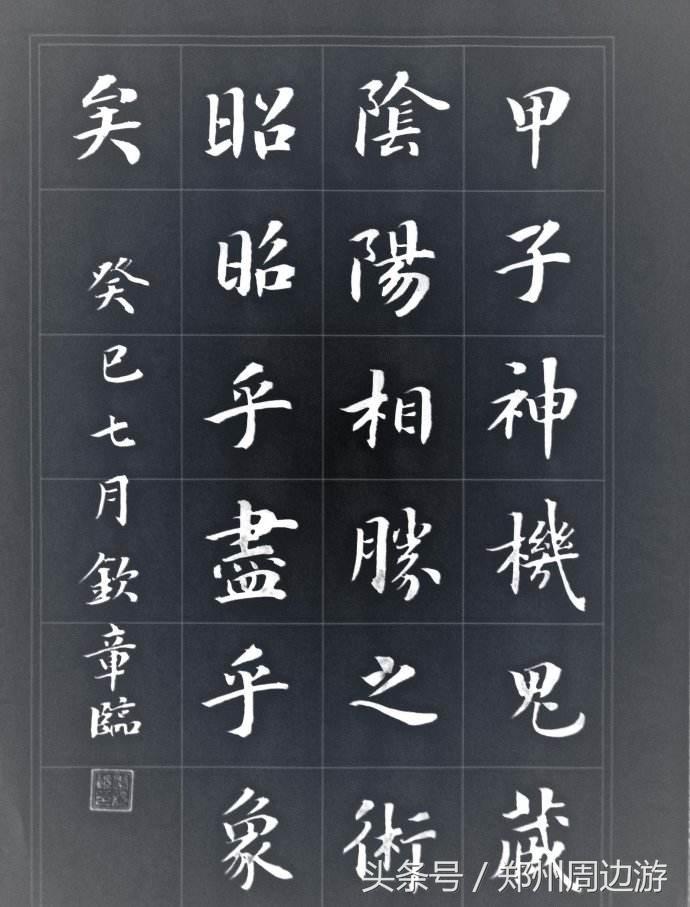 甲子神機鬼藏
陰陽相勝之術
昭昭乎盡乎象
矣
癸巳七月欽章臨
头条号 / 郑州周边游